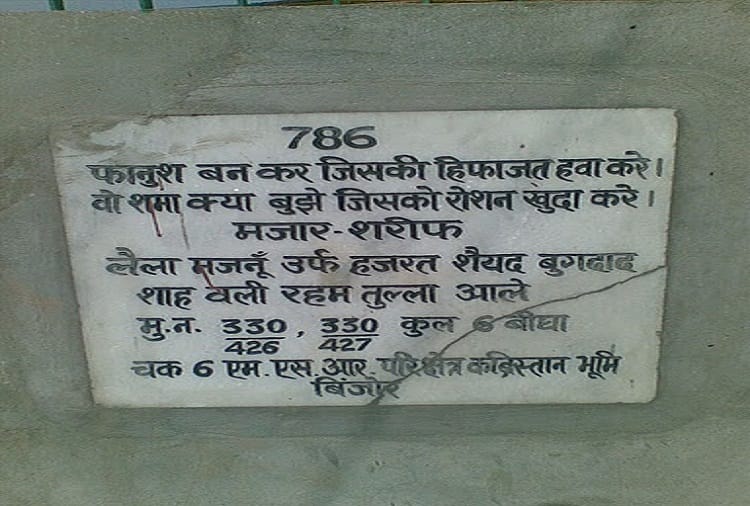 786
फानुश बन कर जिसकी हिफाजत हवा करे।
वो शमा क्या बुझे जिसको रोशन खुदा करे।
मजार-शरीफ
लैला मजनूँ उर्फ हजरत शैयद बुगदाद
शाह वली रहम तुल्ला आले
मु.न. 330/426, 330/427 कुल 6 बीघा
चक 6 एम.एस.आर. परिक्षेत्र कब्रिस्तान भूमि
बिंजोर